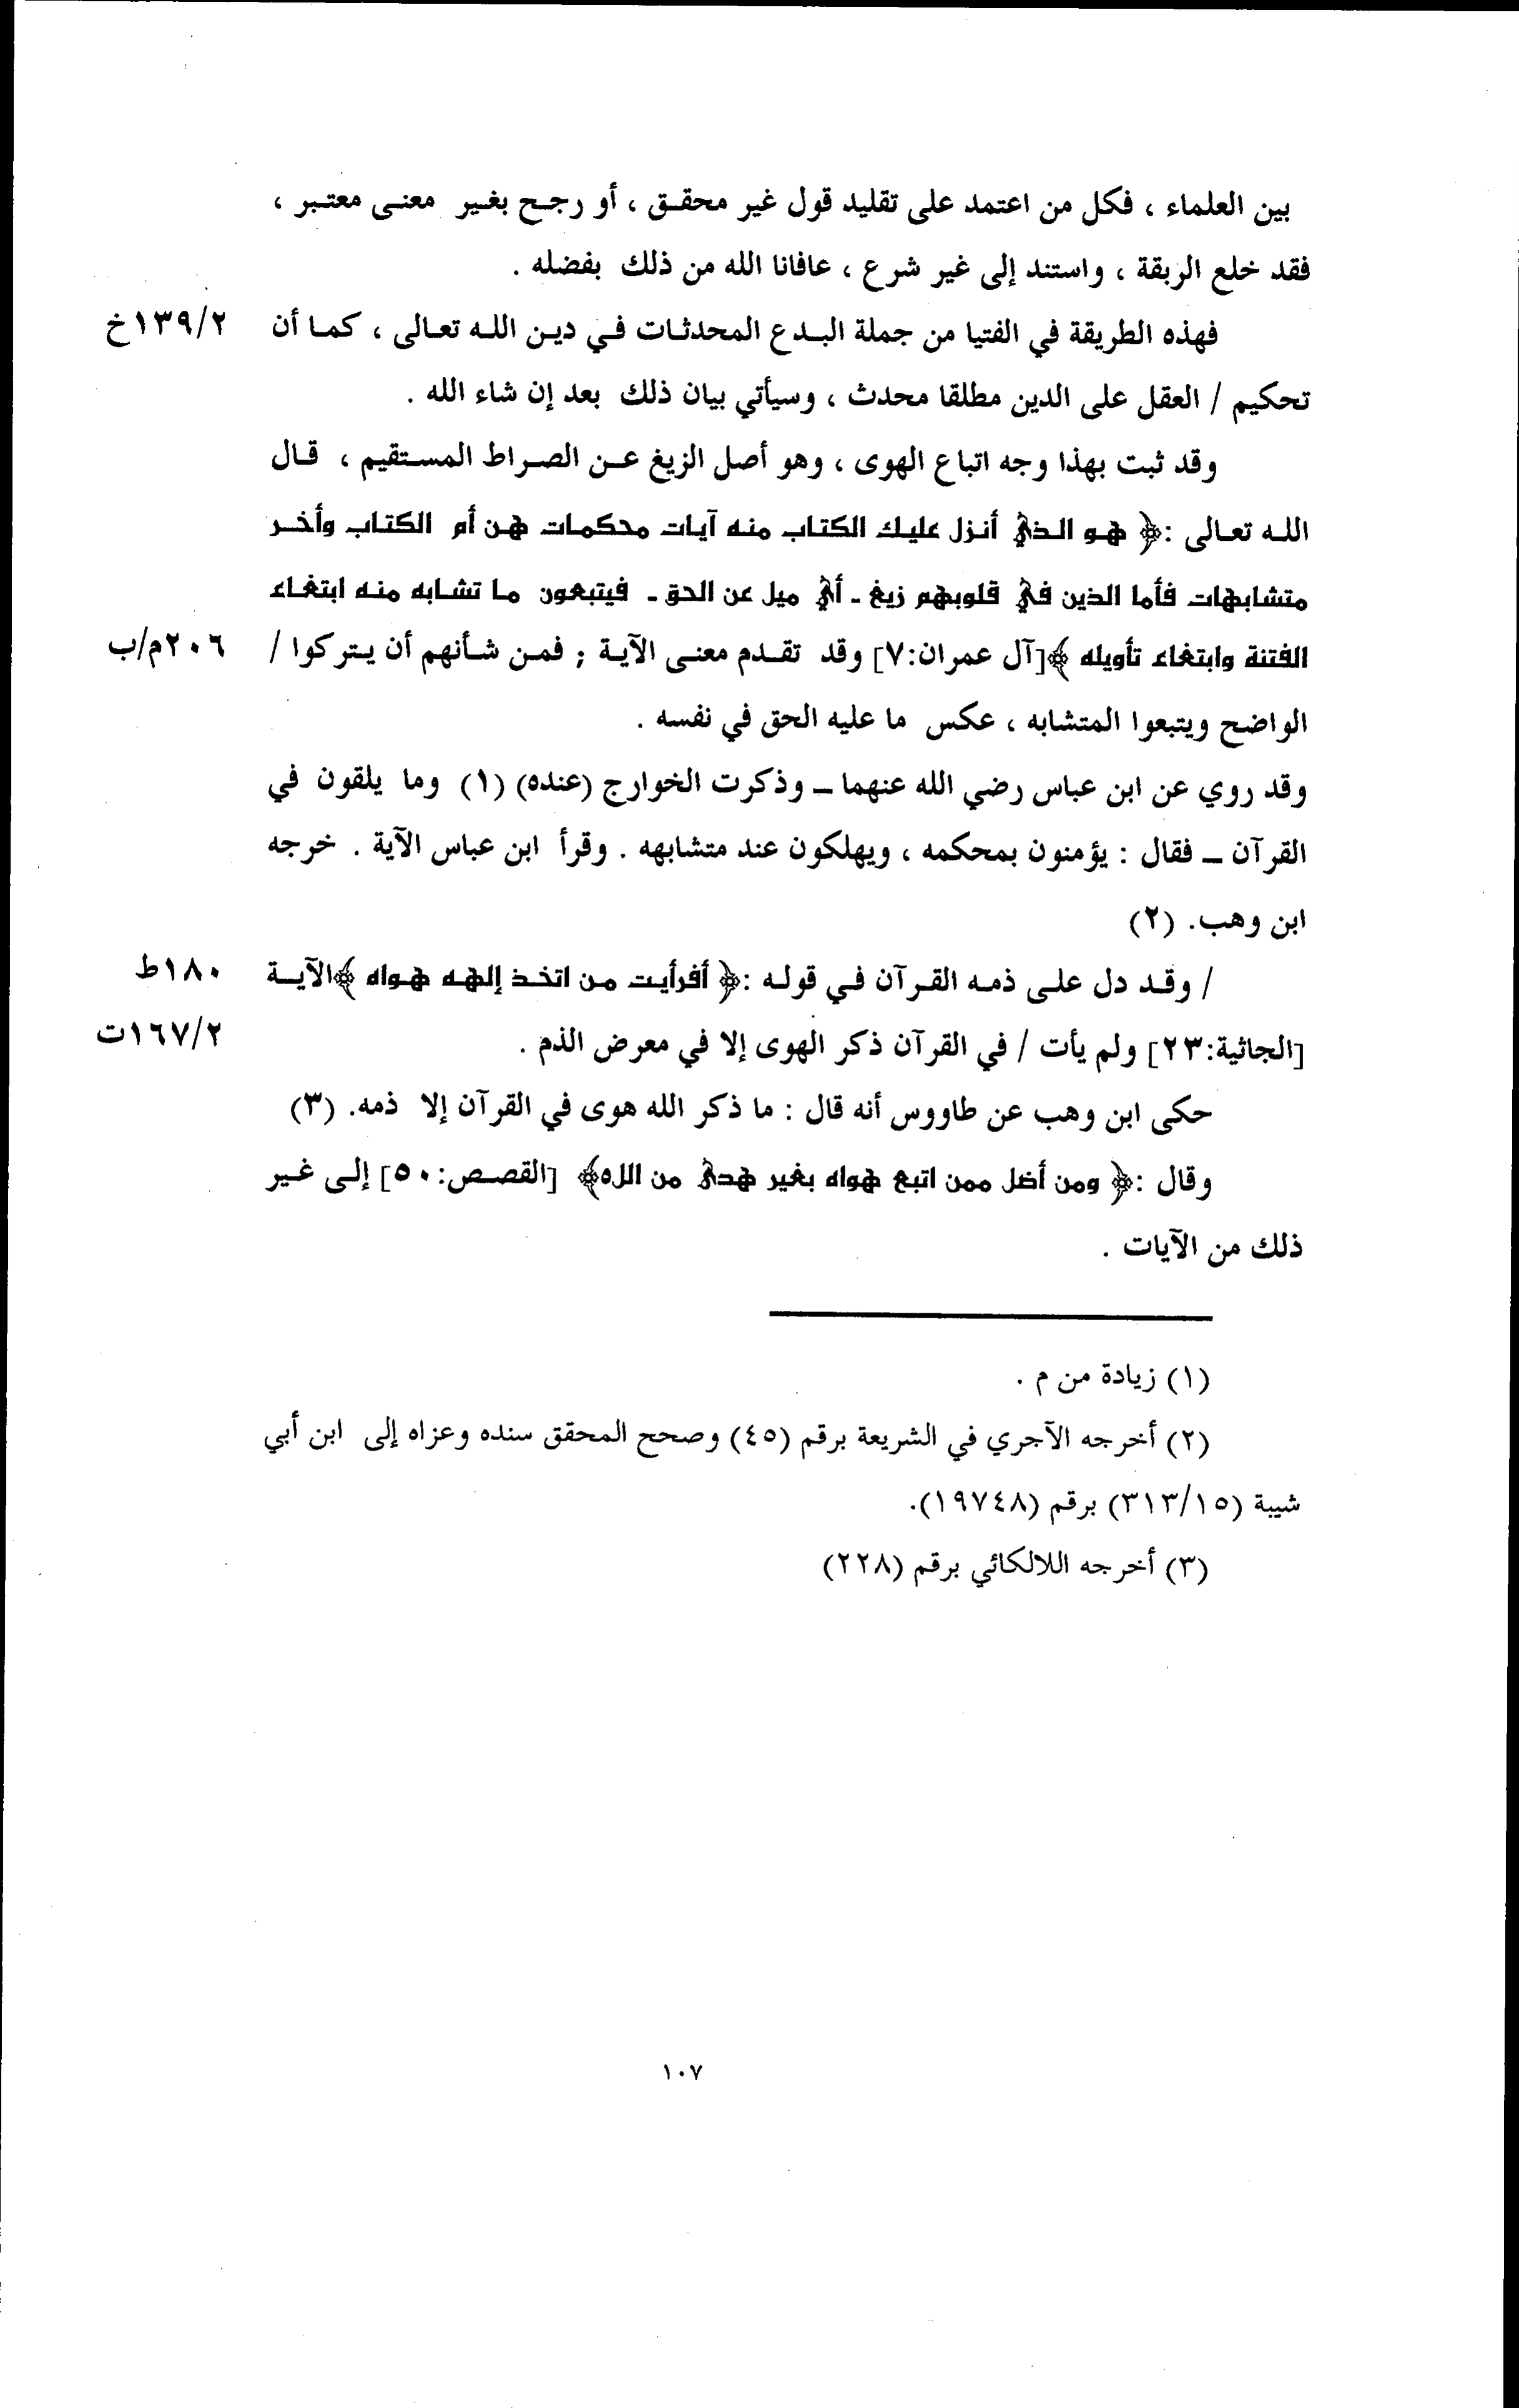 بين العلماء ، فكل من اعتمد على تقليد قول غير محقق ، أو رجح بغير معنى معتبر ،
فقد خلع الربقة ، واستند إلى غير شرع ، عافانا الله من ذلك بفضله .
فهذه الطريقة في الفتيا من جملة البدع المحدثات في دين الله تعالى ، كما أن ١٣٩/٢خ
تحكيم / العقل على الدين مطلقا محدث ، وسيأتي بيان ذلك بعد إن شاء الله .
وقد ثبت بهذا وجه اتباع الهوى ، وهو أصل الزيغ عن الصراط المستقيم ، قال
الله تعالى :﴿ هو الذي أنزل عليك الكتاب منه آيات محكمات هن أم الكتاب وأخر
متشابهات فأما الذين في قلوبهم زيغ - أي ميل عن الحق - فيتبعون ما تشابه منه ابتغاء
الفتنة وابتغاء تأويله ﴾[آل عمران:٧] وقد تقدم معنى الآية ; فمن شأنهم أن يتركوا / ٢٠٦م/ب
الواضح ويتبعوا المتشابه ، عكس ما عليه الحق في نفسه .
وقد روي عن ابن عباس رضي الله عنهما ــ وذكرت الخوارج (عنده) (١) وما يلقون في
القرآن ــ فقال : يؤمنون بمحكمه ، ويهلكون عند متشابهه . وقرأ ابن عباس الآية . خرجه
ابن وهب. (٢)
/ وقد دل على ذمه القرآن في قوله :﴿ أفرأيت من اتخذ إلهه هواه ﴾الآية ١٨٠ط
[الجاثية:٢٣] ولم يأت / في القرآن ذكر الهوى إلا في معرض الذم . ١٦٧/٢ت
حكى ابن وهب عن طاووس أنه قال : ما ذكر الله هوى في القرآن إلا ذمه. (٣)
وقال :﴿ ومن أضل ممن اتبع هواه بغير هدى من الله﴾ [القصص:٥٠] إلى غير
ذلك من الآيات .
(١) زيادة من م .
(٢) أخرجه الآجري في الشريعة برقم (٤٥) وصحح المحقق سنده وعزاه إلى ابن أبي
شيبة (٣١٣/١٥) برقم (١٩٧٤٨).
(٣) أخرجه اللالكائي برقم (٢٢٨)
١٠٧